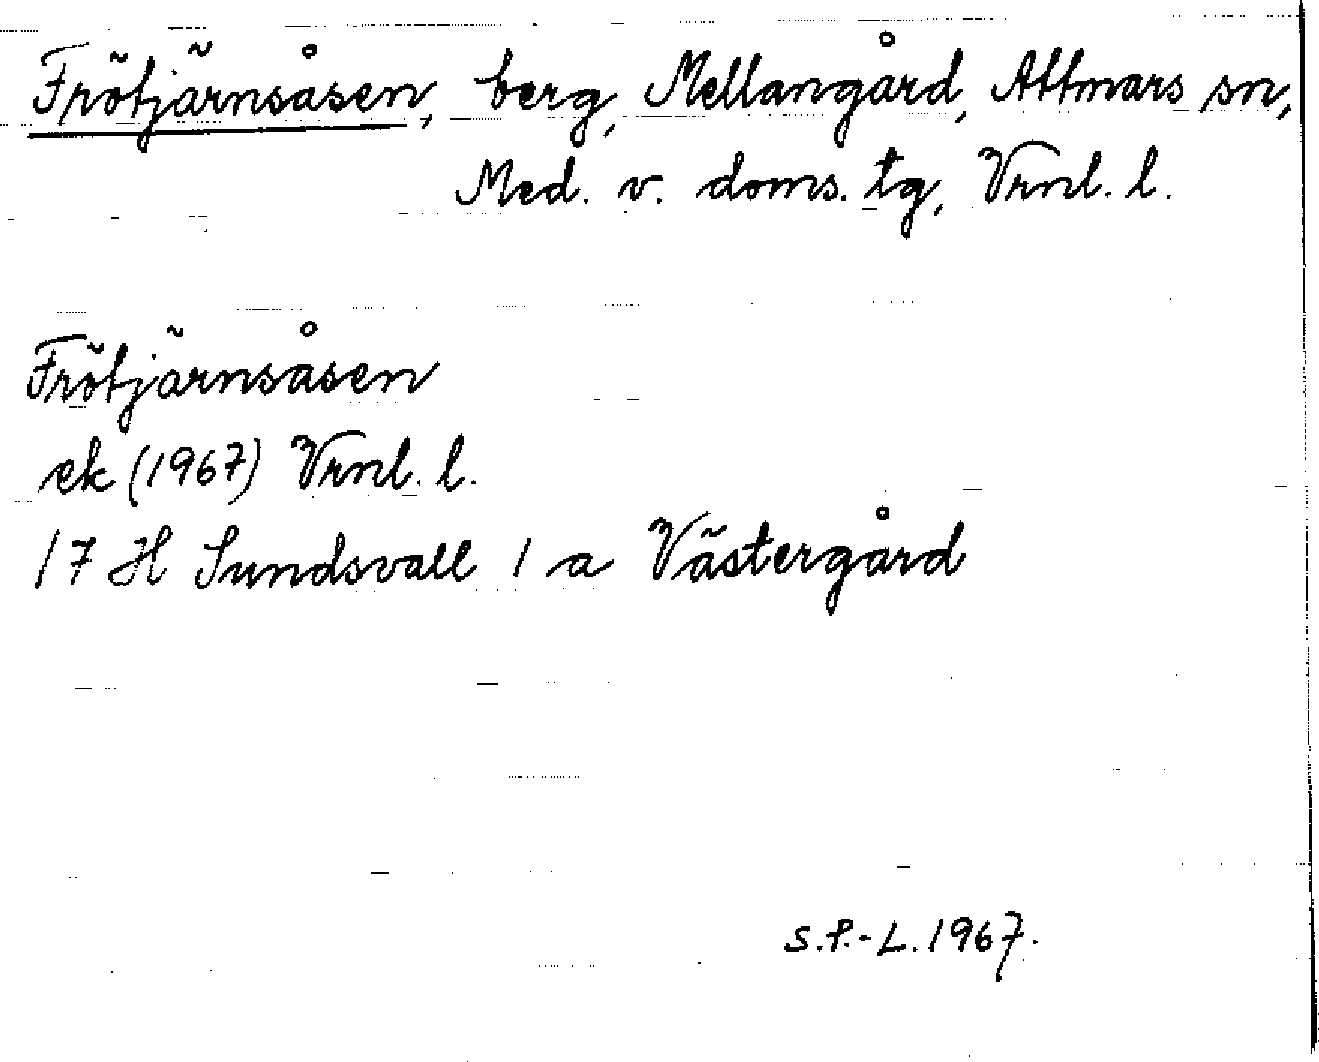 Frötjärnsåsen, berg, Mellangård, Attmars sn,
Med. v. doms. tg, Vrnl. l.
Frötjärnsåsen
ek (1967) Vrnl. l.
17 H Sundsvall 1 a Västergård
S.P.-L. 1967.